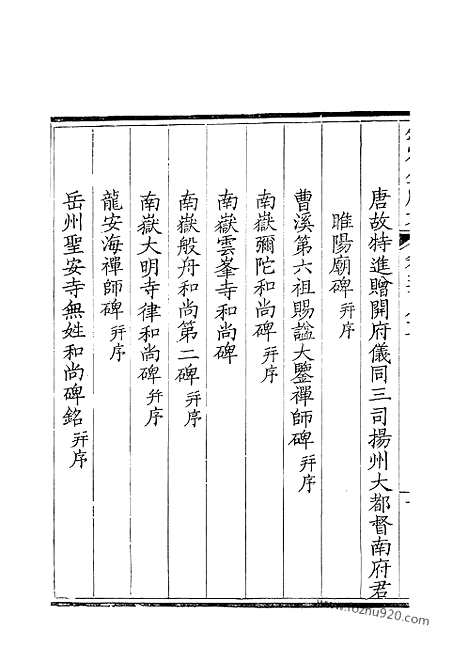 唐故特進贈開府儀同三司揚州大都督南府君
睢陽廟碑并序
曹溪第六祖賜謚大鑒禪師碑并序
南嶽彌陀和尚碑并序
南嶽雲峯寺和尚碑
南嶽般舟和尚第二碑并序
南嶽大明寺律和尚碑并序
龍安海禪師碑并序
岳州聖安寺無姓和尚碑銘并序
www.fozhu920.com